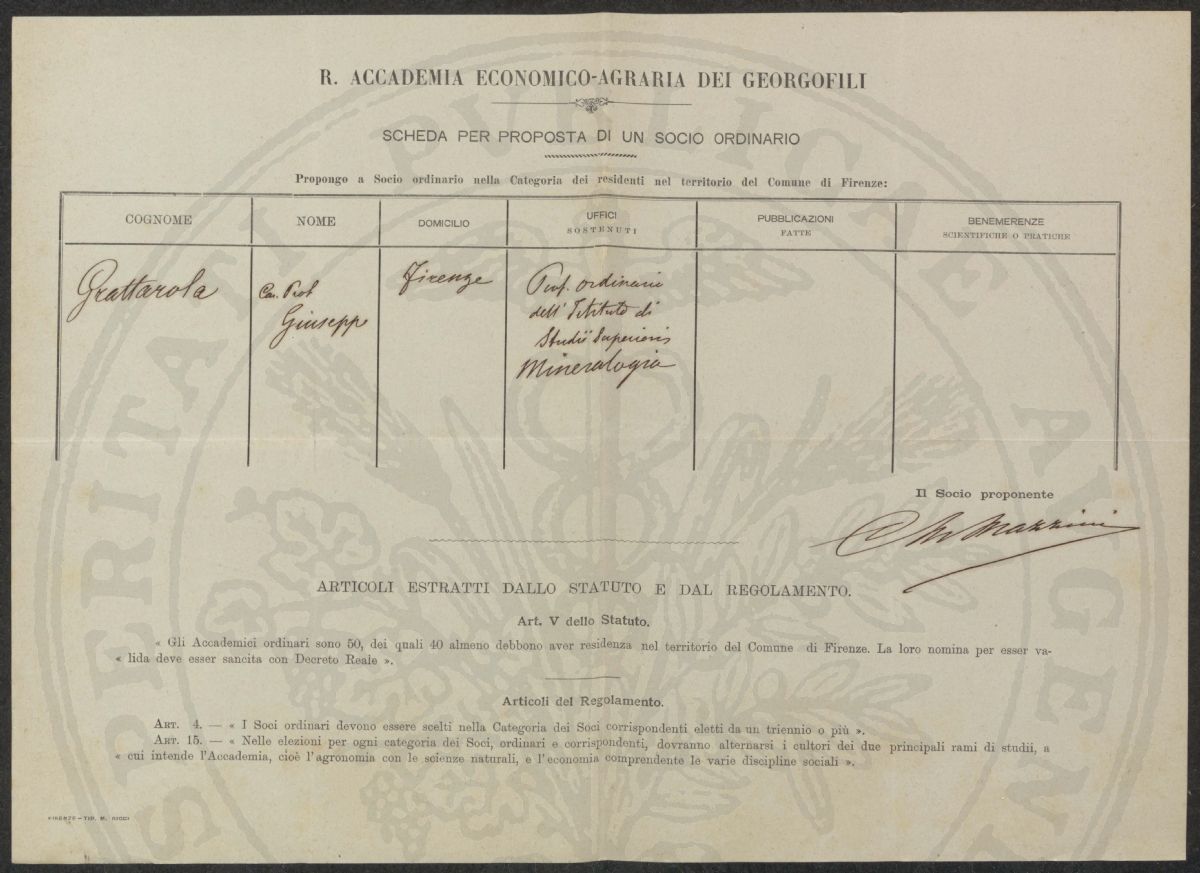 R. ACCADEMIA ECONOMICO-AGRARIA DEI GEORGOFILI
SCHEDA PER PROPOSTA DI UN SOCIO ORDINARIO
Propongo a Socio ordinario nella Categoria dei residenti nel territorio del Comune di Firenze:
COGNOME
NOME
DOMICILIO
UFFICI
SOSTENUTI
PUBBLICAZIONI
FATTE
BENEMERENZE
SCIENTIFICHE O PRATICHE
Grattarola
Cav. Prof
Giuseppe
Firenze
Prof. ordinario
dell'Istituto di
Studii Superiori
Mineralogia
Il Socio proponente
Mazzini
ARTICOLI ESTRATTI DALLO STATUTO E DAL REGOLAMENTO.
Art. V dello Statuto.
« Gli Accademici ordinari sono 50, dei quali 40 almeno debbono aver residenza nel territorio del Comune di Firenze. La loro nomina per esser va-
« lida deve esser sancita con Decreto Reale ».
Articoli del Regolamento.
ART. 4. — « I Soci ordinari devono essere scelti nella Categoria dei Soci corrispondenti eletti da un triennio o più ».
ART. 15. — « Nelle elezioni per ogni categoria dei Soci, ordinari e corrispondenti, dovranno alternarsi i cultori dei due principali rami di studii, a
« cui intende l'Accademia, cioè l'agronomia con le scienze naturali, e l'economia comprendente le varie discipline sociali ».
FIRENZE — TIP. M. RICCI
PROSPERITATI PUBLICAE AVGENDAE